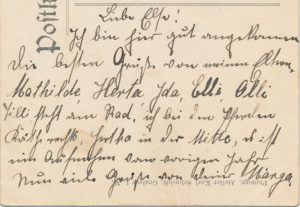 Postk
Liebe Else!
Ich bin hier gut angekommen
Die besten Grüße von meinen Eltern,
Mathilde, Herta, Ida, Elli, Alli
Tilli steht am Rad, ich bei den
rechts, Hertha in der Mitte, es ist
eine Aufnahme vom vorigen Jahr
Nun viele Grüße von deiner Marga
Photogr. Atelier Karl Schmidt